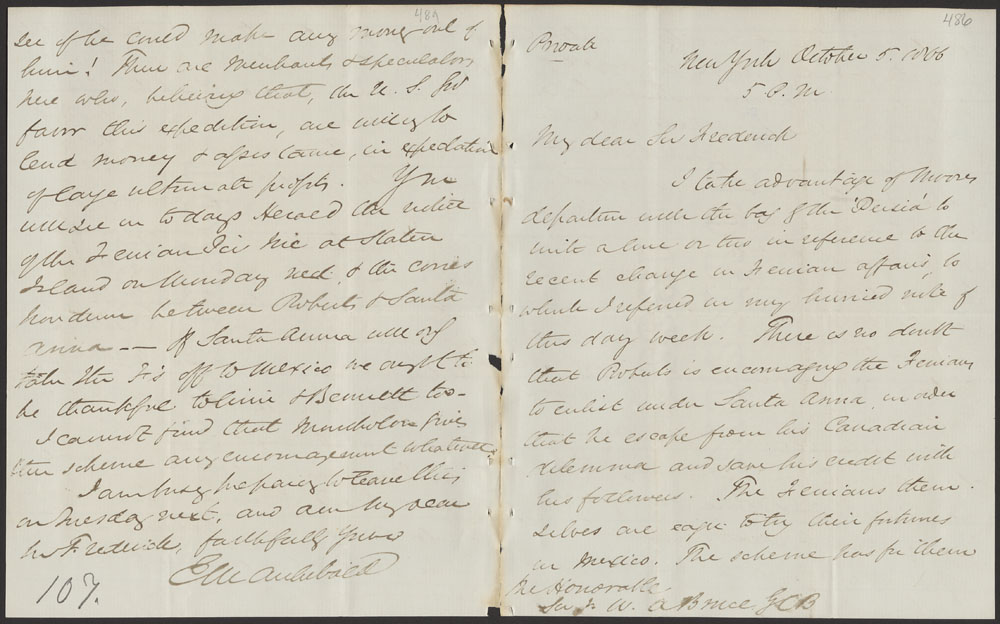 486
Private
New York October 5. 1866
5 P.M.
My dear Sir Frederick
I take advantage of Moore's
departure with the bag of the 'Persia' to
write a line or two in reference to the
recent change in Fenian affairs, to
which I referred in my hurried note of
this day week. There is no doubt
that Roberts is encouraging the Fenians
to enlist under Santa Anna in order
that he escape from his Canadian
dilemma and save his credit with
his followers. The Fenians them
selves are eager to try their fortunes
in Mexico. The scheme has for them
The Honorable
Sir F W. A Bruce GCB
489
see if he could make any money out of
him! There are Merchants & speculators
here who, believing that, the U.S. Gvt
favor this expedition, are willing to
lend money & assistance, in expectation
of large ultimate profits. You
will see in to days Herald the notice
of the Fenian Pic Nic at Staten
Island on Monday next & the corres
pondence between Roberts & Santa
Anna -- If Santa Anna will only
take the F's off to Mexico we ought to
be thankful to him & Bennett too -
I cannot find that gives
the scheme any encouragement whatever.
I am busy preparing to leave this
on Tuesday next, and am My dear
Sir Frederick, faithfully Yours
E M Archibald
107.